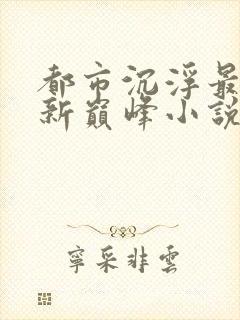 都市沉浮最
新巔峰小說
寧采非雲